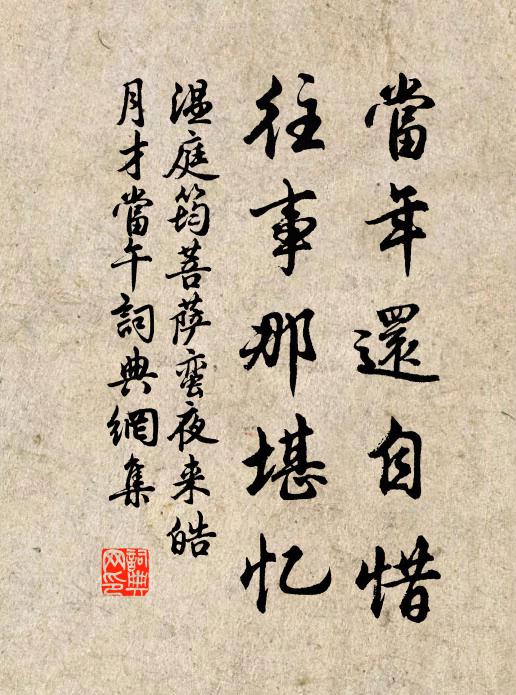 當年還自惜
往事那堪忆
温庭筠菩萨蛮夜来皓
月才當午詞典網集
詞典
网印